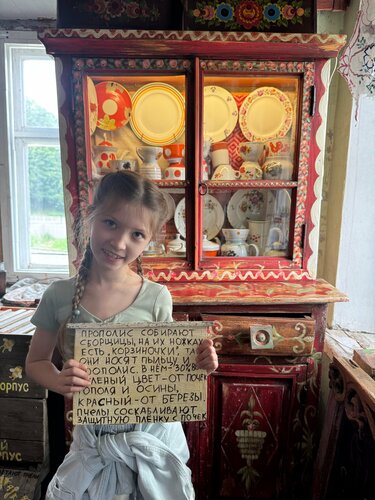 ПРОПОЛИС СОБИРАЮТ
СБОРЩИЦЫ, НА ИХ НОЖКАХ
ЕСТЬ „КОРЗИНОЧКИ",
ОНИ НОСЯТ ПЫЛЬЦУ И
ПРОПОЛИС. В НЁМ
ЦВЕТ-ОТ ПОЧЕК
ТОПОЛЯ И ОСИНЫ,
КРАСНЫЙ-ОТ БЕРЕЗЫ.
ПЧЕЛЫ СОСКАБЛИВАЮТ
ЗАЩИТНУЮ ПЛЕНКУ С ПОЧЕК
корпус